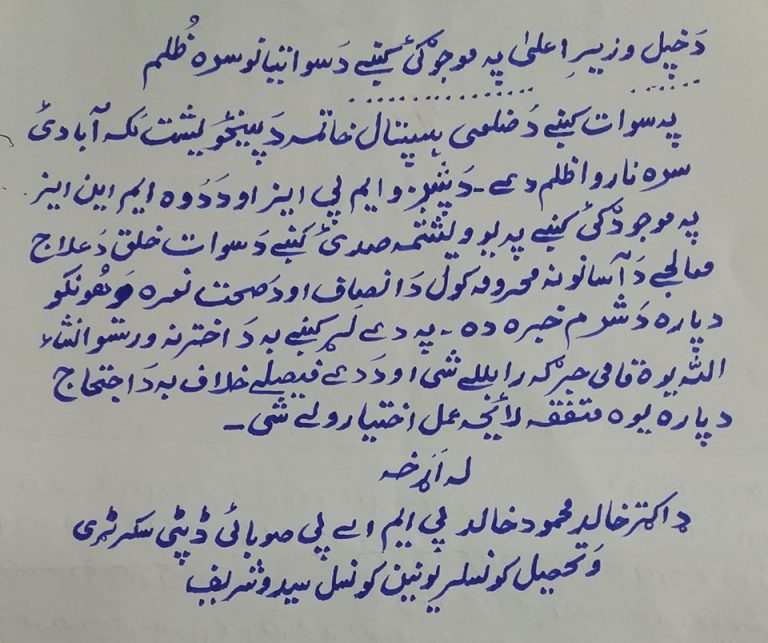 دَخپل وزیرِ اعلیٰ په موجودګئ کښے دَ سواتیانو سره ظُلم
په سوات کښے دَ ضلعی هسپتال خاتمه دَ پینځویشت لکه آبادئ
سره ناروا ظلم دے ۔ دَ شپږو ایم پی ایز او دَ دَوه ایم این ایز
په موجودګئ کښے په یوویشتمه صدئ کښے دَ سوات خلق دَ علاج
معالجے دَ آسانونه محرومه کول دَ انصاف او دَ صحت نعره وَهونکو
دپاره دَ شرم خبره ده ۔ په دے لړ کښے به دَ اختر نه ورستو انشاء
اللّٰه یوه قامی جرګه رابللے شی او دَ دے فیصلے خلاف به دَ اجتحاج
دپاره یوه متفقه لائحه عمل اختیارولے شی ۔
له اَړخه
ډاکټر خالد محمود خالد پی ایم اے پی صوبائی ڈپٹی سکرٹری
وَ تحصیل کونسلر یونین کونسل سیدو شریف